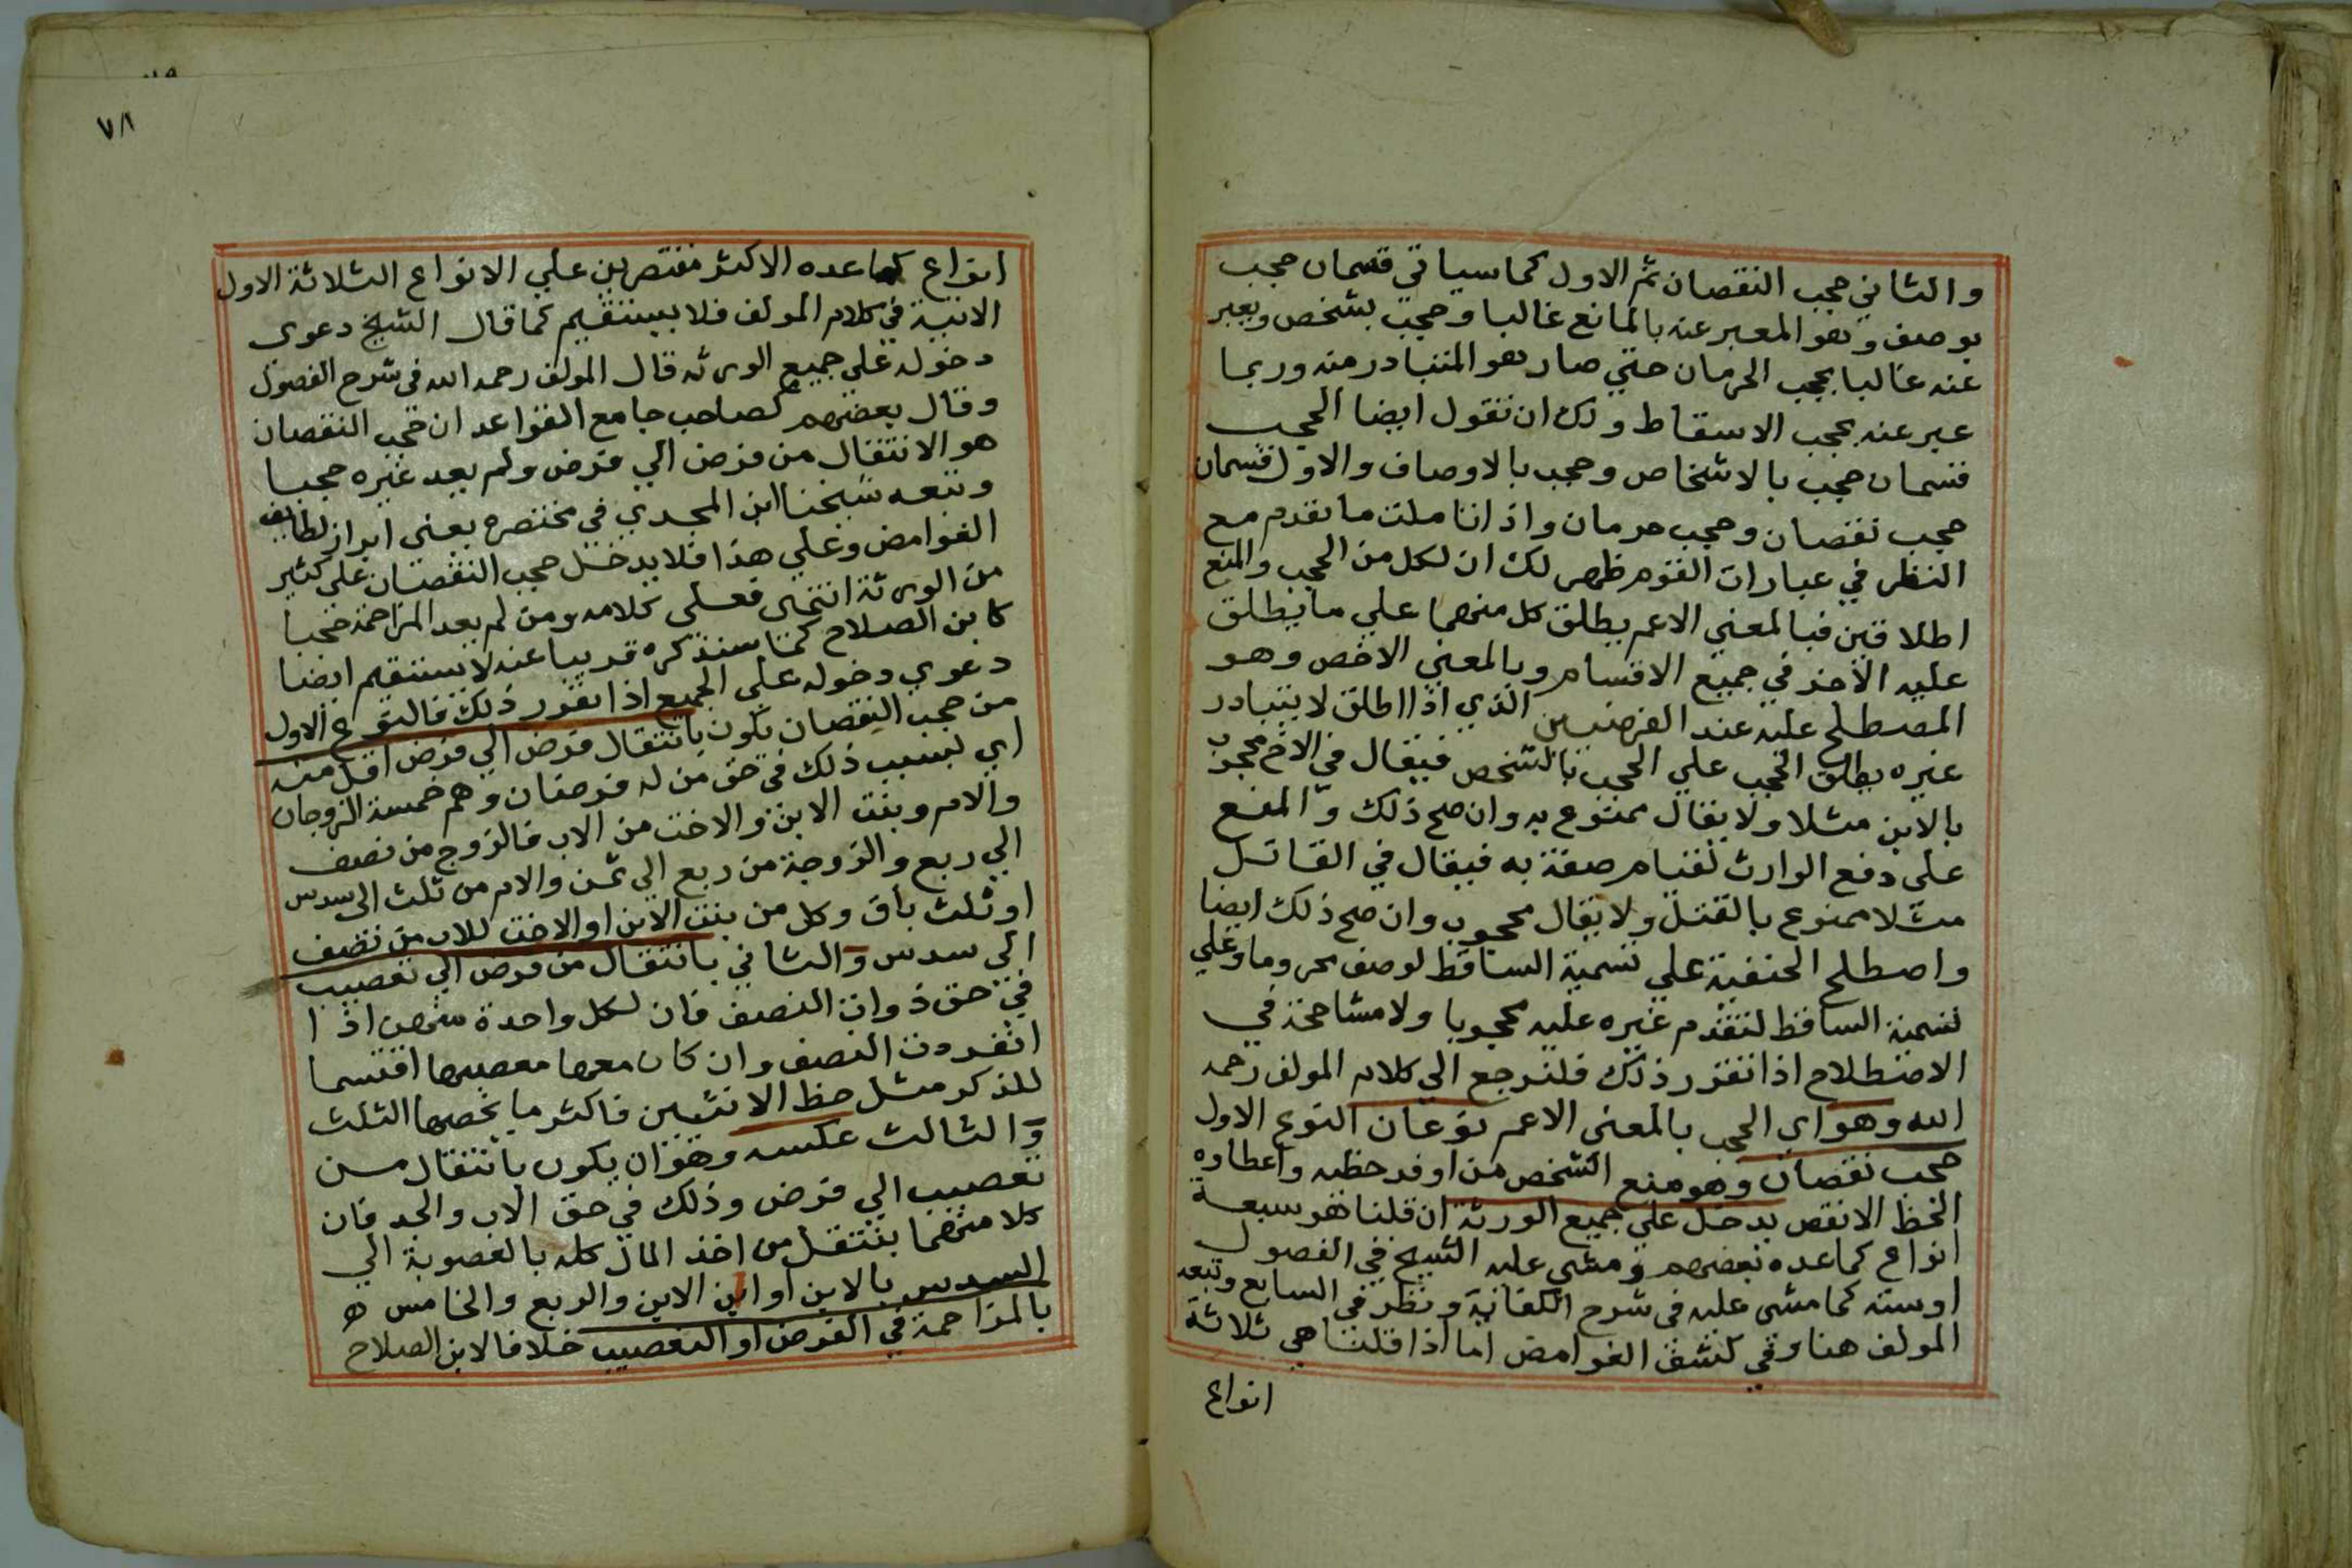 والثاني حجب النقصان ثم الاول كما سياتي قسمان حجب
بوصف وهو المعبر عنه بالمانع غالبا وحجب بشخص ويعبر
عنه غالبا بحجب الحرمان حتي صار هو المتبادر منه وربما
عبر عنه بحجب الاسقاط ولك ان تقول ايضا الحجب
قسمان حجب بالاشخاص وحجب بالاوصاف والاول قسمان
حجب نقصان وحجب حرمان واذا تاملت ما تقدم مع
النظر في عبارات القوم ظهر لك ان لكل من الحجب والمنع
اطلاقين فبالمعني الاعم يطلق كل منهما علي ما يطلق
عليه الآخر في جميع الاقسام وبالمعني الاخص وهو
المصطلح عليه عند الفرضيين الذي اذا اطلق لا يتبادر
غيره يطلق الحجب علي الحجب بالشخص فيقال في الاخ محجوب
بالابن مثلا ولا يقال ممنوع به وان صح ذلك والمنع
على دفع الوارث لقيام صفة به فيقال في القاتل
مثلا ممنوع بالقتل ولا يقال محجوب وان صح ذلك ايضا
واصطلح الحنفية علي تسمية الساقط لوصف محروما وعلي
تسمية الساقط لتقدم غيره عليه محجوبا ولا مشاححة في
الاصطلاح اذا تقرر ذلك فلنرجع الي كلام المولف رحمه
الله وهو اي الحجب بالمعني الاعم نوعان النوع الاول
حجب نقصان وهو منع الشخص من اوفر حظيه واعطاوه
الحظ الانقص يدخل علي جميع الورثة ان قلنا هو سبعة
انواع كما عده بعضهم ومشي عليه الشيخ في الفصول
اوستة كما مشى عليه فى شرح الكفاية ونظر في السابع وتبعه
المولف هنا وفي كشف الغوامض اما اذا قلنا هي ثلاثة
انواع
٧٨
انواع كما عده الاكثر مقتصرين علي الانواع الثلاثة الاول
الاتية في كلام المولف فلا يستقيم كما قال الشيخ دعوى
دخوله على جميع الورثه قال المولف رحمه الله فى شرح الفصول
وقال بعضهم كصاحب جامع القواعد ان حجب النقصان
هو الانتقال من فرض الي فرض ولم يعد غيره حجبا
وتبعه شيخنا ابن المجدي في مختصره يعني ابراز لطايف
الغوامض وعلي هذا فلا يدخل حجب النقصان على كثير
من الورثة انتهى فعلى كلامه ومن لم يعد المزاحمة حجبا
كابن الصلاح كما سنذكره قريبا عنه لا يستقيم ايضا
دعوي دخوله علي الجميع اذا تقرر ذلك فالنوع الاول
من حجب النقصان يكون بانتقال فرض الي فرض اقل منه
اي بسبب ذلك في حق من له فرضان وهم خمسة الزوجان
والام وبنت الابن والاخت من الاب فالزوج من نصف
الي ربع والزوجة من ربع الي ثمن والام من ثلث الى سدس
او ثلث باق وكل من بنت الابن او الاخت للاب من نصف
الى سدس والثاني بانتقال من فرض الي تعصيب
في حق ذوات النصف فان لكل واحدة منهن اذا
انفردت النصف وان كان معها معصبها اقتسما
للذكر مثل حظ الانثيين فاكثر ما يخصها الثلث
والثالث عكسه وهو ان يكون بانتقال من
تعصيب الي فرض وذلك في حق الاب والجد فان
كلا منهما ينتقل من اخذ المال كله بالعصوبة الي
السدس بالابن او ابن الابن والربع والخامس ه
بالمزاحمة في الفرض او التعصيب خلافا لابن الصلاح